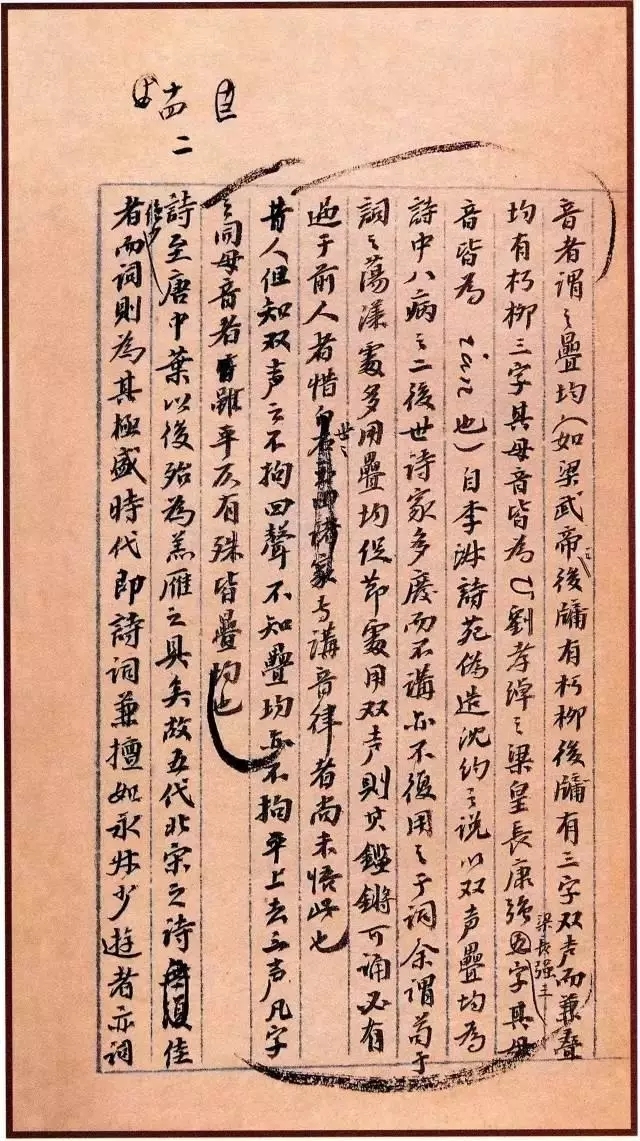 十四
二
音者謂之疊均(如梁武帝後牗有朽柳後牗有三字双声而兼疊
均有朽柳三字其母音皆為U劉孝綽之梁皇長康強五字其母
梁長强三
音皆為ian也)自李淑詩苑偽造沈約之說以双声疊均為
詩中八病之二後世詩家多廢而不講亦不復用之于詞余謂苟于
詞之蕩漾處多用疊均促節處用双声則其鏗鏘可誦必有
過于前人者惜世之专講音律者尚未悟此也
昔人但知双声之不拘四聲不知疊均亦不拘平上去三声凡字
之同母音者雖平仄有殊皆疊均也
詩至唐中葉以後殆為羔雁之具矣故五代北宋之詩佳
者絕少而詞則為其極盛時代即詩詞兼擅如永叔少游者亦詞